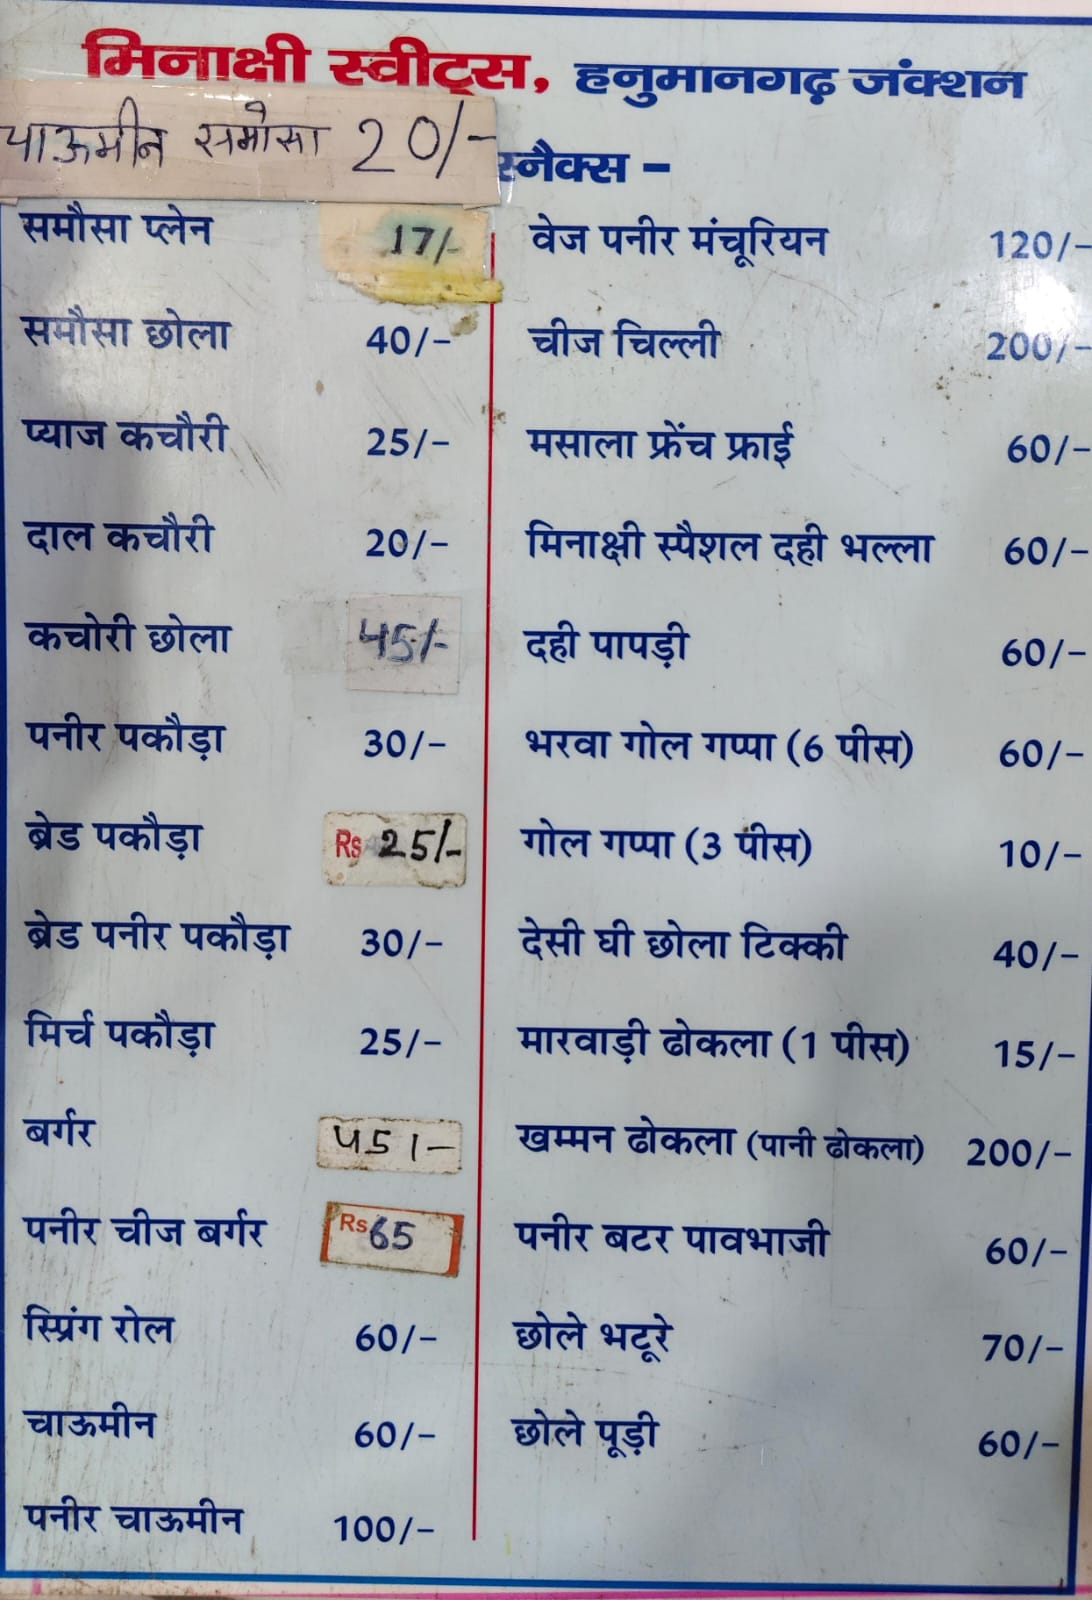 मिनाक्षी स्वीट्स, हनुमानगढ़ जंक्शन
चाऊमीन समोसा 20/-
स्नैक्स –
समौसा प्लेन 17/-
समौसा छोला 40/-
प्याज कचौरी 25/-
दाल कचौरी 20/-
कचोरी छोला 45/-
पनीर पकौड़ा 30/-
ब्रेड पकौड़ा Rs 25/-
ब्रेड पनीर पकौड़ा 30/-
मिर्च पकौड़ा 25/-
बर्गर 45/-
पनीर चीज बर्गर Rs 65
स्प्रिंग रोल 60/-
चाऊमीन 60/-
पनीर चाऊमीन 100/-
वेज पनीर मंचूरियन 120/-
चीज चिल्ली 200/-
मसाला फ्रेंच फ्राई 60/-
मिनाक्षी स्पैशल दही भल्ला 60/-
दही पापड़ी 60/-
भरवा गोल गप्पा (6 पीस) 60/-
गोल गप्पा (3 पीस) 10/-
देसी घी छोला टिक्की 40/-
मारवाड़ी ढोकला (1 पीस) 15/-
खम्मन ढोकला (पानी ढोकला) 200/-
पनीर बटर पावभाजी 60/-
छोले भटूरे 70/-
छोले पूड़ी 60/-